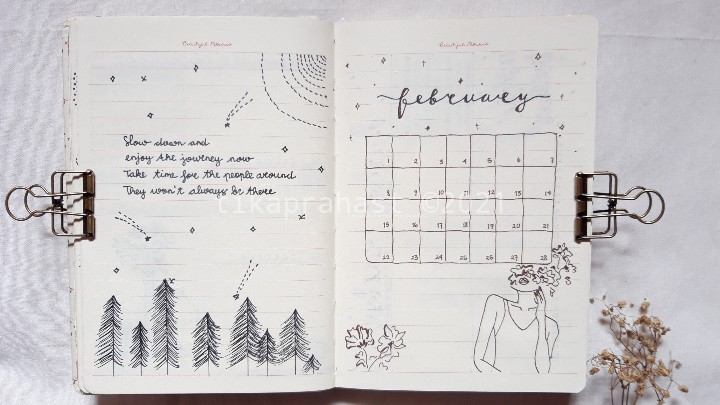 Slow down and
enjoy the journey now
Take time for the people around
They won't always be there
february
1 2 3 4 5 6 7
8 9 10 11 12 13 14
15 16 17 18 19 20 21
22 23 24 25 26 27 28
©2021